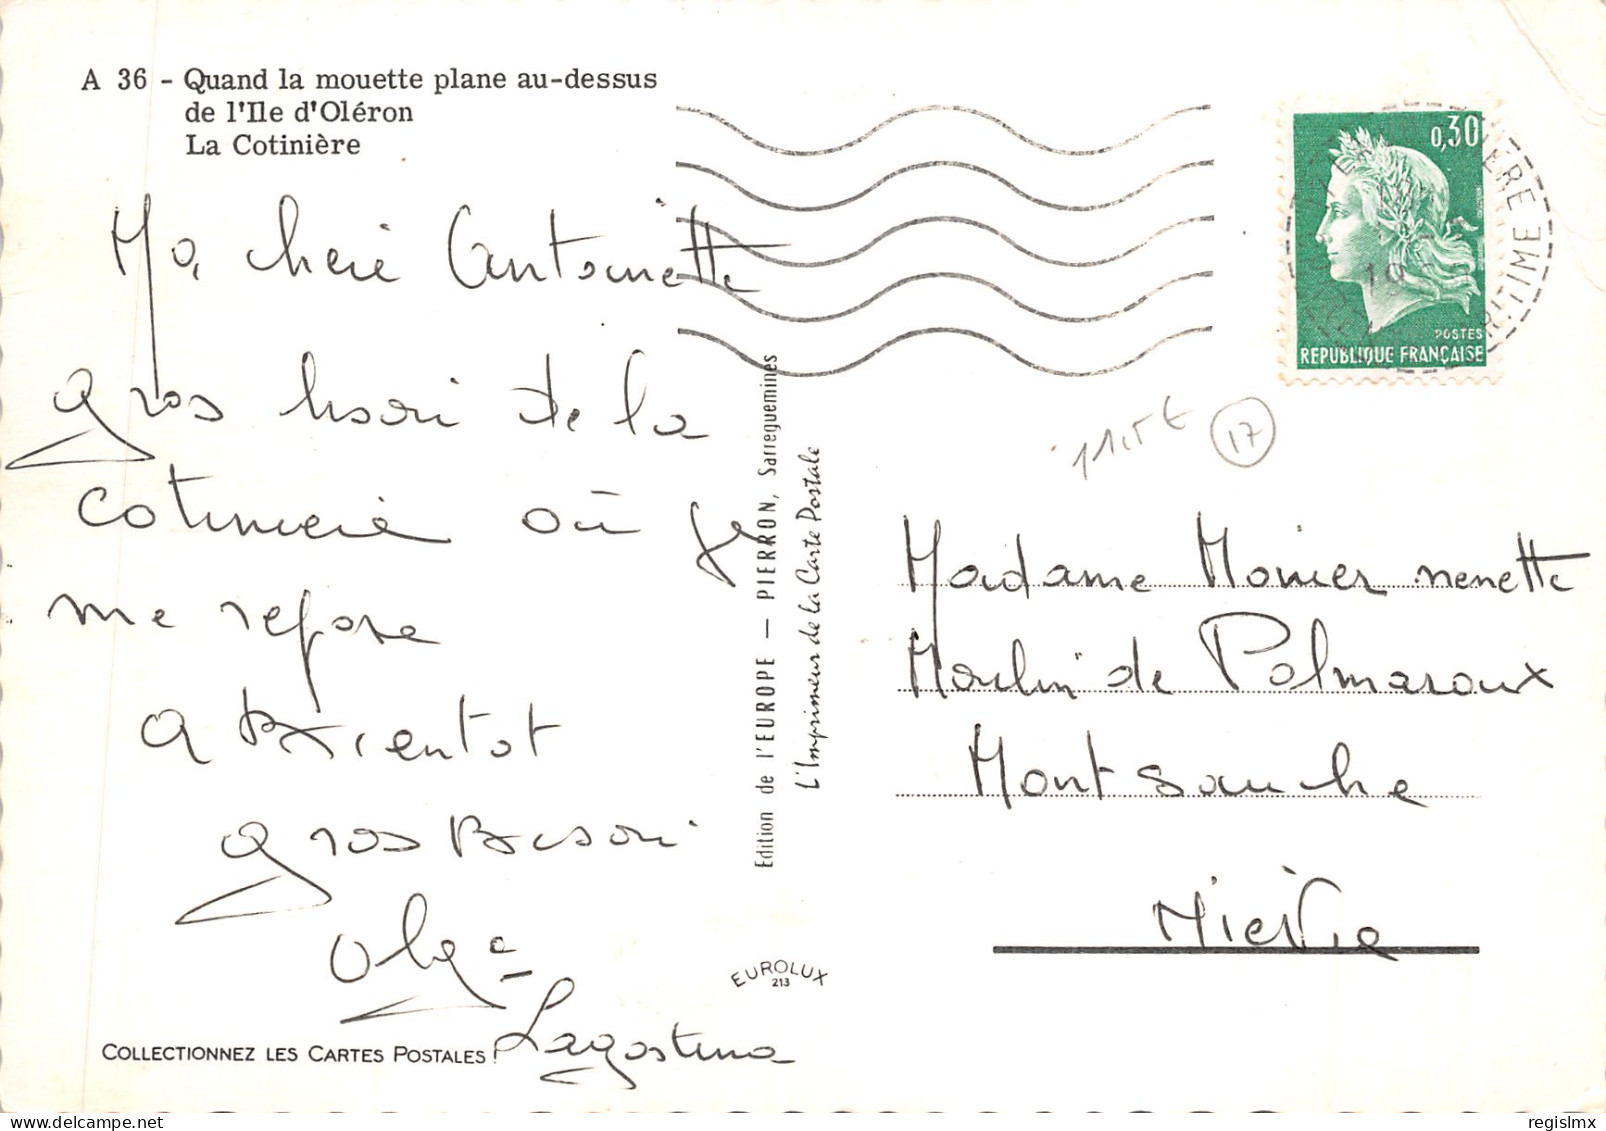 A 36 - Quand la mouette plane au-dessus
de l'Ile d'Oléron
La Cotinière
Ma, cherie Antoinette
gros baisir de la
cotiniere où je
me repose
a Bientot
gros Baison
Olga
Lagostina
COLLECTIONNEZ LES CARTES POSTALES !
Edition de l'EUROPE — PIERRON, Sarreguemines
L'Imprimeur de la Carte Postale
EUROLUX
213
0,30
POSTES
REPUBLIQUE FRANÇAISE
17
Madame Monier nenette
Moulin de Palmaroux
Montsauche
Nievre
regislmx